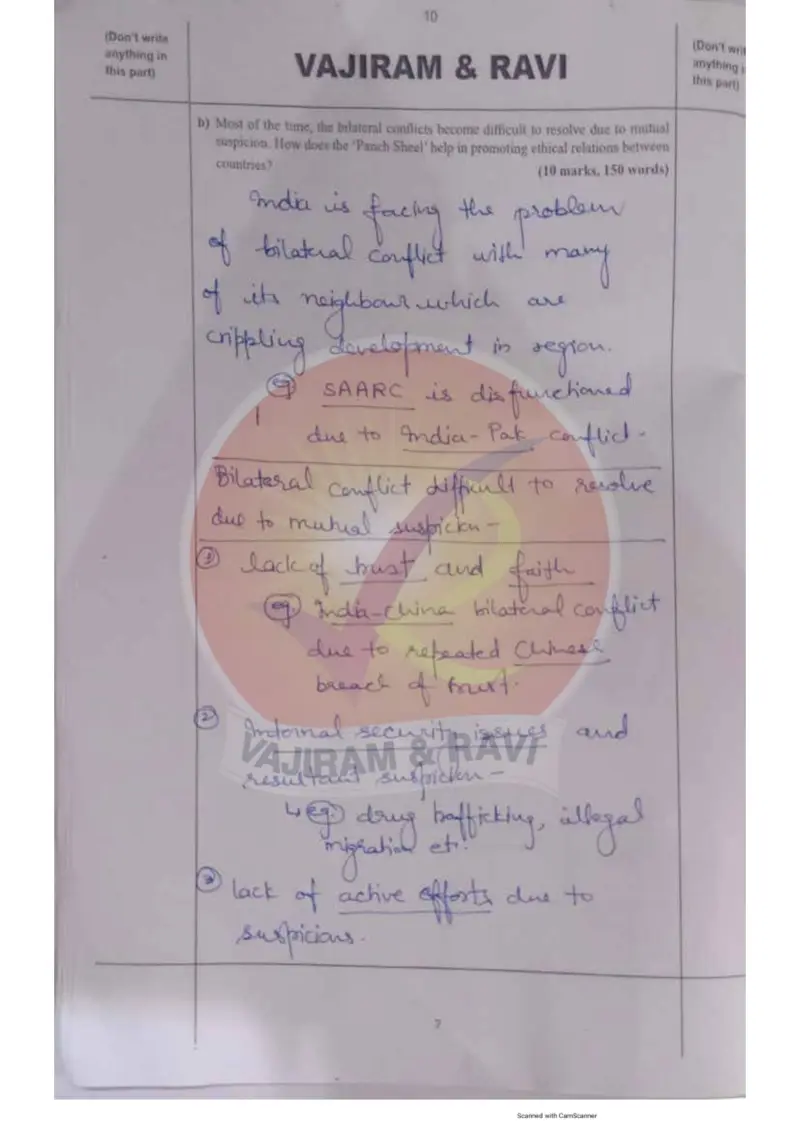 10
(Don't write
anything in
this part)
VAJIRAM & RAVI
(Don't wri
anything i
this part)
b) Most of the time, the bilateral conflicts become difficult to resolve due to mutual
suspicion. How does the 'Panch Sheel' help in promoting ethical relations between
countries?
(10 marks, 150 words)
India is facing the problem
of bilateral conflict with many
of its neighbour which are
crippling development in region.
eg SAARC is disfunctioned
due to India-Pak conflict.
Bilateral conflict difficult to resolve
due to mutual suspicion -
1 lack of trust and faith
eg. India-China bilateral conflict
due to repeated Chinese
breach of trust.
2 Internal security issues and
VAJIRAM & RAVI
resultant suspicion -
↳ eg. drug trafficking, illegal
migration etc.
3 lack of active efforts due to
suspicions.
7
Scanned with CamScanner